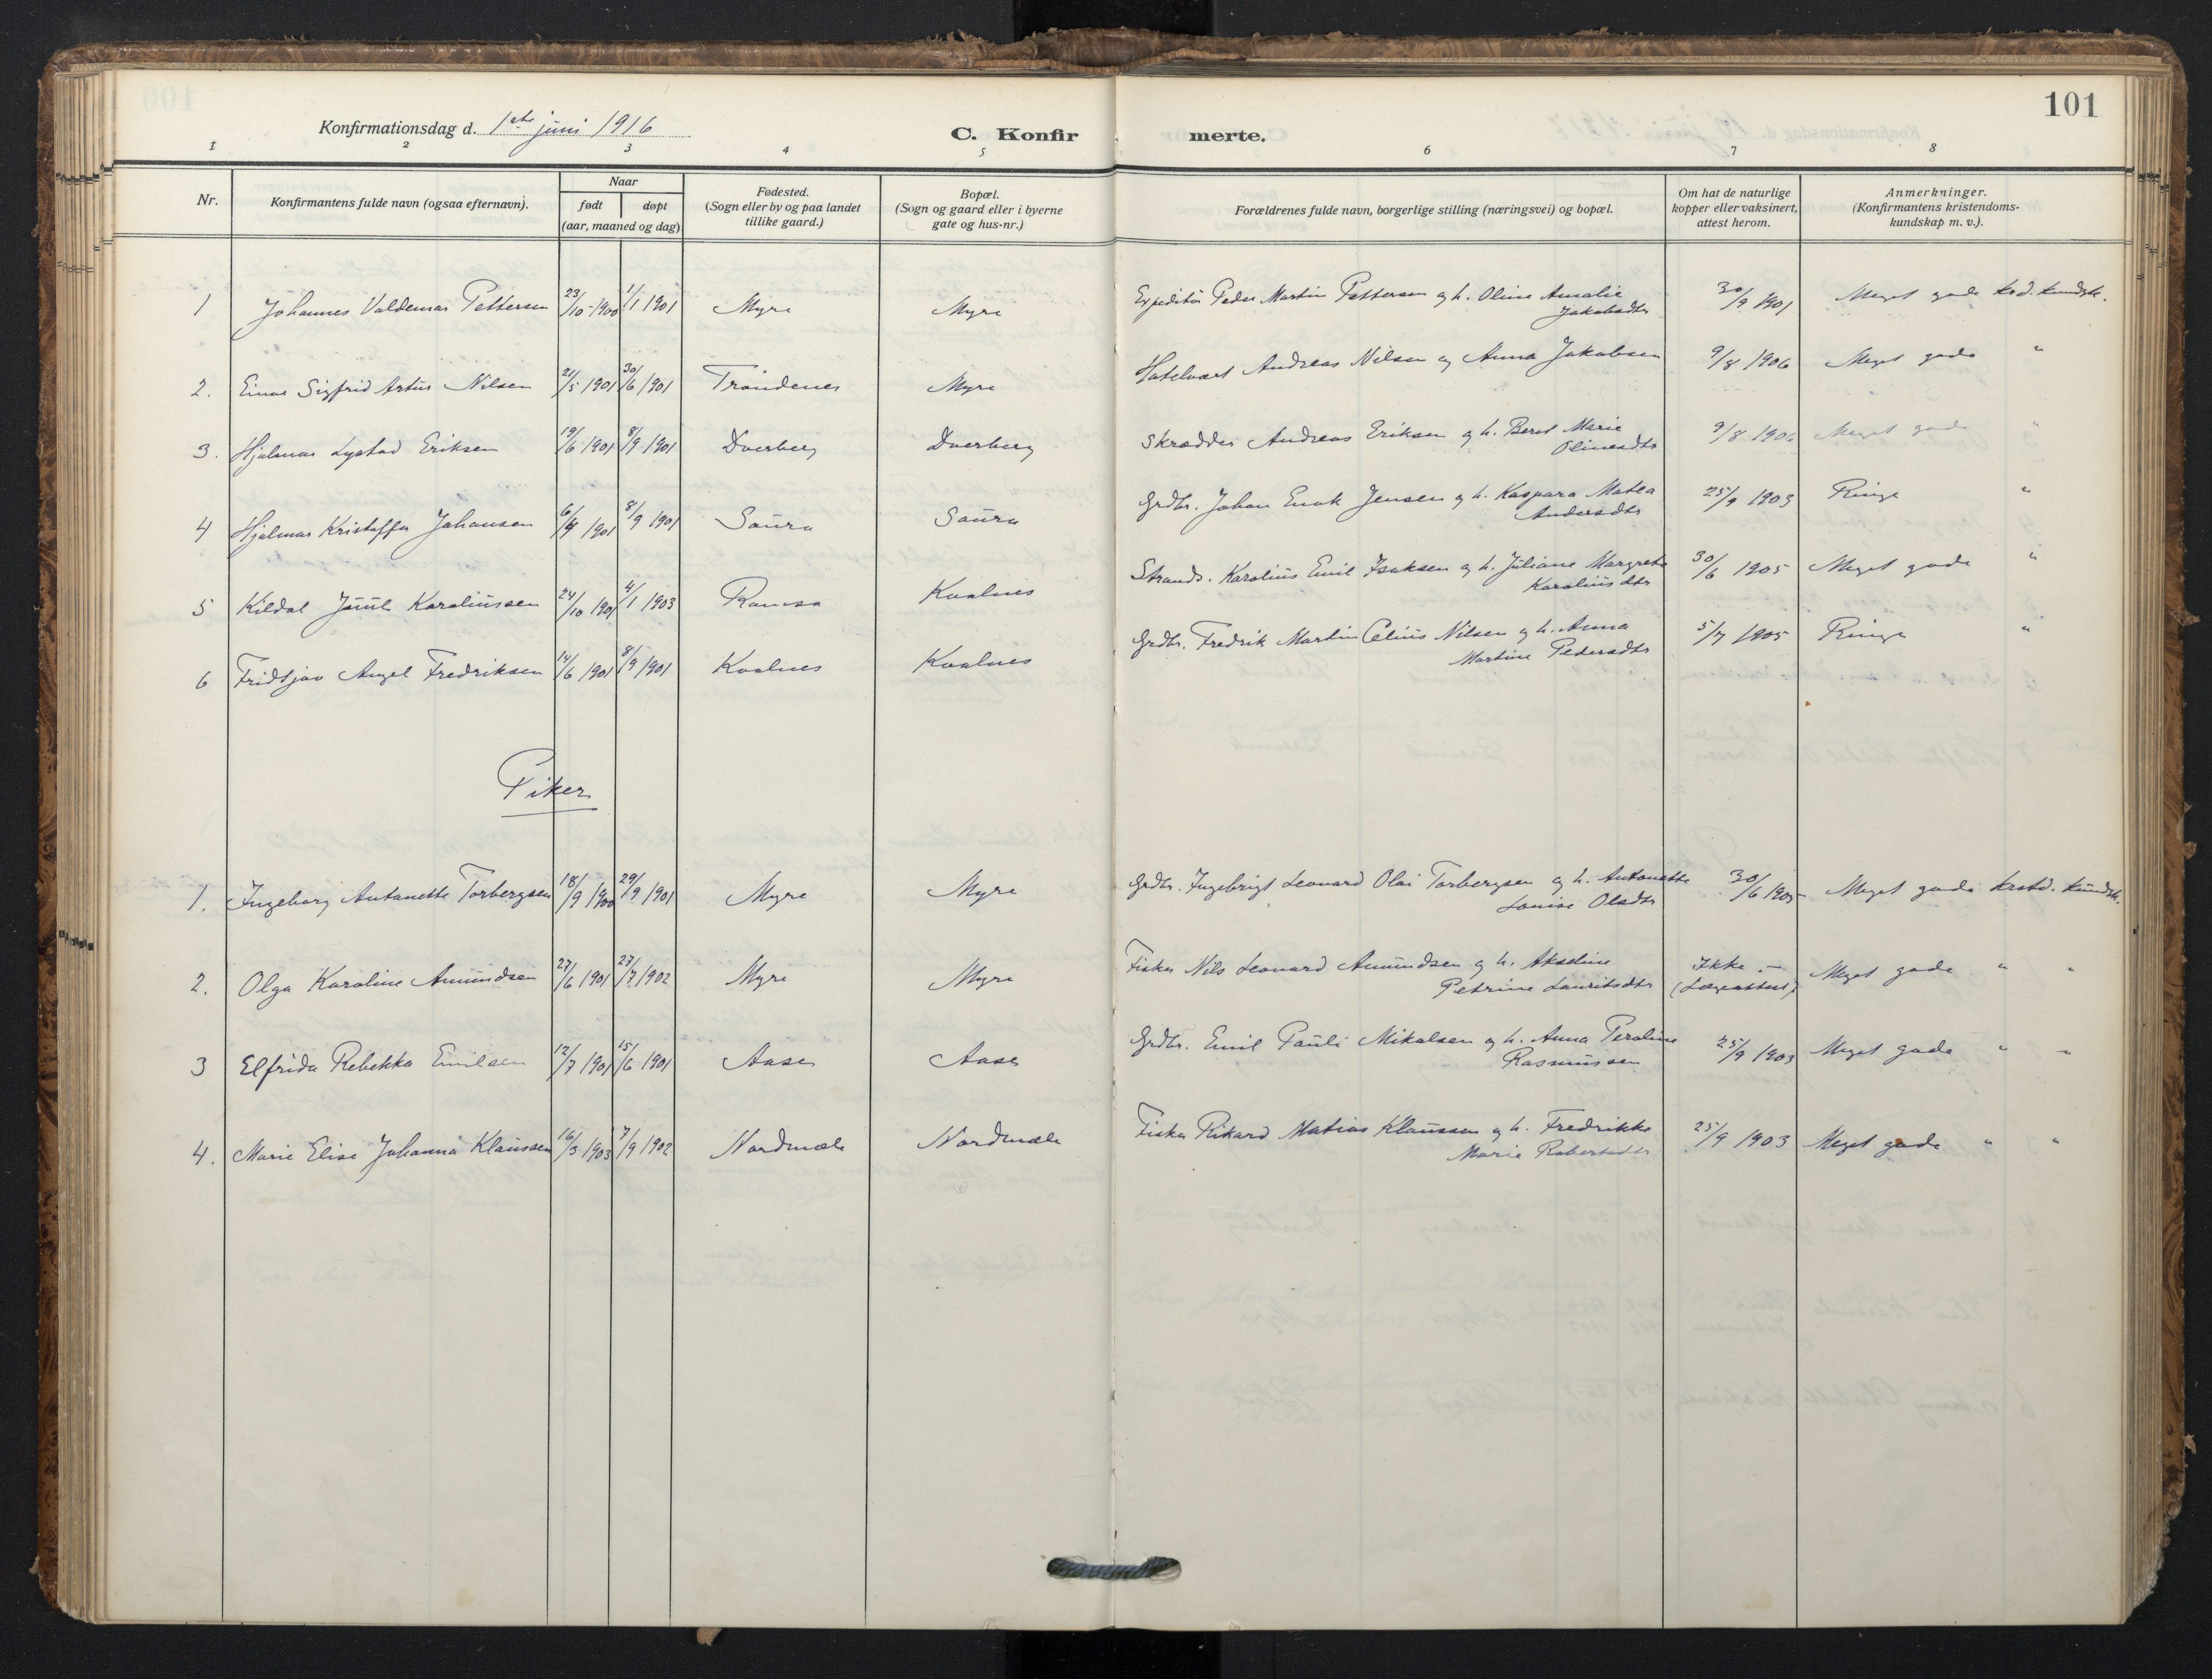 101
Konfirmationsdag d. 1ste juni 1916
C. Konfirmerte.
1 2 3 4 5 6 7 8
Nr.
Konfirmantens fulde navn (ogsaa efternavn).
Naar
født døpt
(aar, maaned og dag)
Fødested.
(Sogn eller by og paa landet
tillike gaard.)
Bopæl.
(Sogn og gaard eller i byerne
gate og hus-nr.)
Forældrenes fulde navn, borgerlige stilling (næringsvei) og bopæl.
Om hat de naturlige
kopper eller vaksinert,
attest herom.
Anmerkninger.
(Konfirmantens kristendoms-
kundskap m. v.).
1 Johannes Valdemar Pettersen 23/10-1900 1/1 1901 Myre Myre Expeditør Peder Martin Pettersen og h. Oline Amalie Jakobsdtr 30/9 1901 Meget gode krd. kundsk.
2. Einar Sigfrid Artur Nilsen 21/5 1901 30/6 1901 Trondenes Myre Hotelvært Andreas Nilsen og Anna Jakobsen 9/8 1906 Meget gode "
3. Hjalmar Lystad Eriksen 19/6 1901 8/9 1901 Dverberg Dverberg Skrædder Andreas Eriksen og h. Beret Marie Olinesdtr 9/8 1906 Meget gode "
4 Hjalmar Kristoffer Johansen 6/8 1901 8/9 1901 Saura Saura Grdbr. Johan Enok Jensen og h. Kaspara Matea Andersdtr 25/9 1903 Ringe "
5 Kildal Juul Karoliussen 24/10 1901 4/1 1903 Ramsa Kvalnes Strands. Karolius Emil Isaksen og h. Juliane Margrete Karoliusdtr 30/6 1905 Meget gode "
6 Fridtjov Angel Fredriksen 14/6 1901 8/9 1901 Kvalnes Kvalnes Grdbr. Fredrik Martin Celius Nilsen og h. Anna Martine Pedersdtr 5/7 1905 Ringe "
Piker
1. Ingeborg Antonette Torbergsen 18/9 1900 29/9 1901 Myre Myre Grdbr. Ingebrigt Leonard Olai Torbergsen og h. Antonette Louise Olsdtr 30/6 1905 Meget gode krstd. kundsk.
2. Olga Karoline Amundsen 27/6 1901 27/7 1902 Myre Myre Fisker Nils Leonard Amundsen og h. Akseline Petrine Lauritsdtr Ikke – (Lægeattest) Meget gode " "
3 Elfrida Rebekka Emilsen 12/7 1901 15/6 1901 Aase Aase Grdbr. Emil Pauli Mikalsen og h. Anna Peroline Rasmussen 25/9 1903 Meget gode " "
4. Marie Elise Johanna Klaussen 16/3 1903 7/9 1902 Nordmæle Nordmæle Fisker Rikard Matias Klaussen og h. Fredrikke Marie Robertsdtr 25/9 1903 Meget gode " "